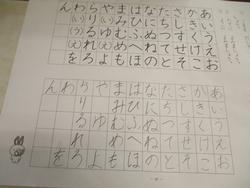 あいうえお
かきくけこ
さしすせそ
たちつてと
なにぬねの
はひふへほ
まみむめも
や(い)ゆ(え)よ
らりるれろ
わ(い)(う)(え)を
ん
あいうえお
かきくけこ
さしすせそ
たちつてと
なにぬねの
はひふへほ
まみむめも
やゆよ
らりるれろ
わを
ん